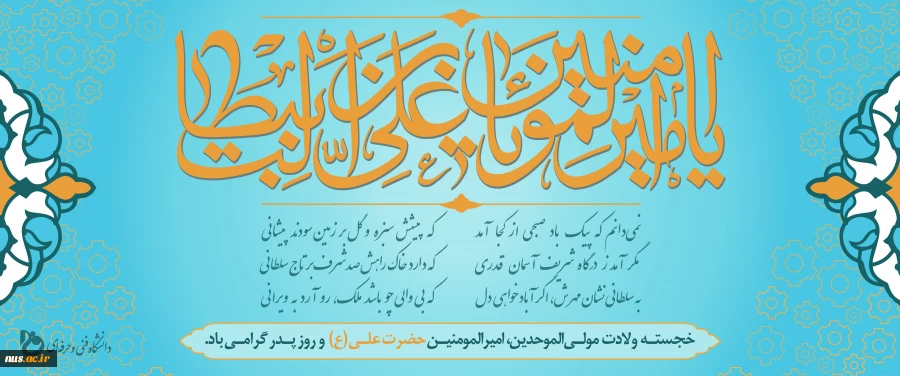 یا امیرالمومنین یا علی بن ابیطالب
نمی‌دانم که پیک باد صبحی از کجا آمد که پیشش سبزه و گل بر زمین سودند پیشانی
مگر آمد ز درگاه شریف آسمان قدری که دارد خاک راهش صد شرف بر تاج سلطانی
به سلطانی نشان مهرش، اگر آباد خواهی دل که بی والی چو باشد ملک، رو آرد به ویرانی
خجسته ولادت مولی‌الموحدین، امیرالمومنین حضرت علی (ع) و روز پدر گرامی باد.
دانشگاه فنی و حرفه‌ای
nus.ac.ir